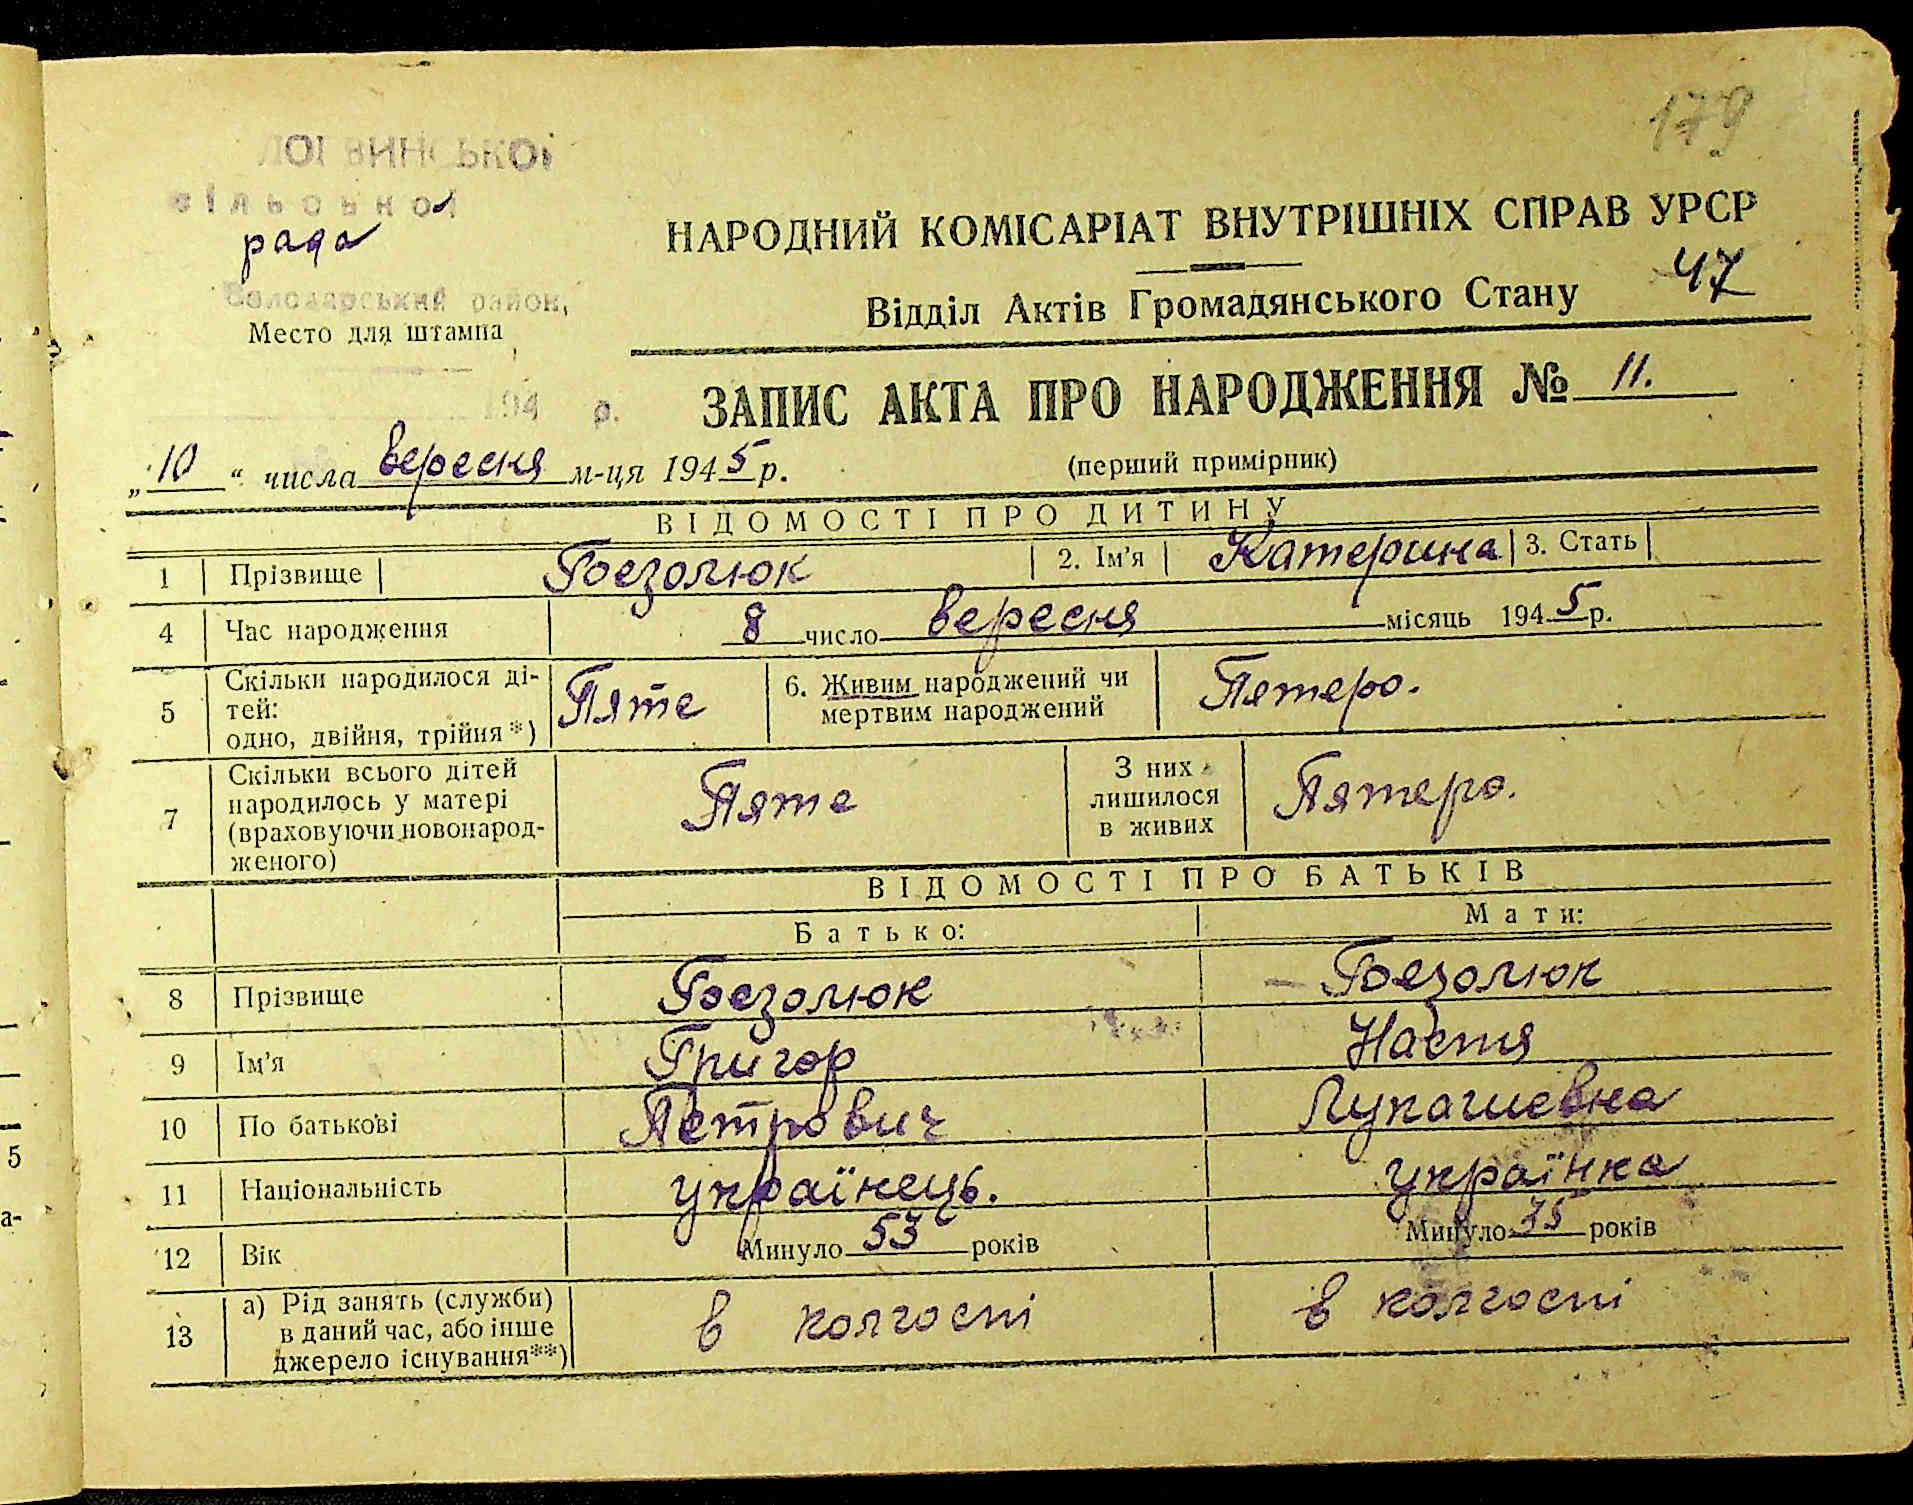 179
ЛОГВИНСЬКОЇ
сільської
рада
НАРОДНИЙ КОМІСАРІАТ ВНУТРІШНІХ СПРАВ УРСР
47
Відділ Актів Громадянського Стану
Володарський район,
Место для штампа
194 р.
ЗАПИС АКТА ПРО НАРОДЖЕННЯ № 11.
„10“ числа вересня м-ця 1945 р.
(перший примірник)
ВІДОМОСТІ ПРО ДИТИНУ
1 Прізвище Гоєзолюк 2. Ім'я Катерина 3. Стать
4 Час народження 8 число вересня місяць 1945 р.
5 Скільки народилося ді-
тей:
одно, двійня, трійня*) Пяте 6. Живим народжений чи
мертвим народжений Пятеро.
7 Скільки всього дітей
народилось у матері
(враховуючи новонарод-
женого) Пяте З них
лишилося
в живих Пятеро.
ВІДОМОСТІ ПРО БАТЬКІВ
Батько: Мати:
8 Прізвище Гоєзолюк Гоєзолюк
9 Ім'я Григор Настя
10 По батькові Петрович Лукашевна
11 Національність українець. українка
12 Вік Минуло 53 років Минуло 35 років
13 а) Рід занять (служби)
в даний час, або інше
джерело існування**) в колгоспі в колгоспі
5
а-